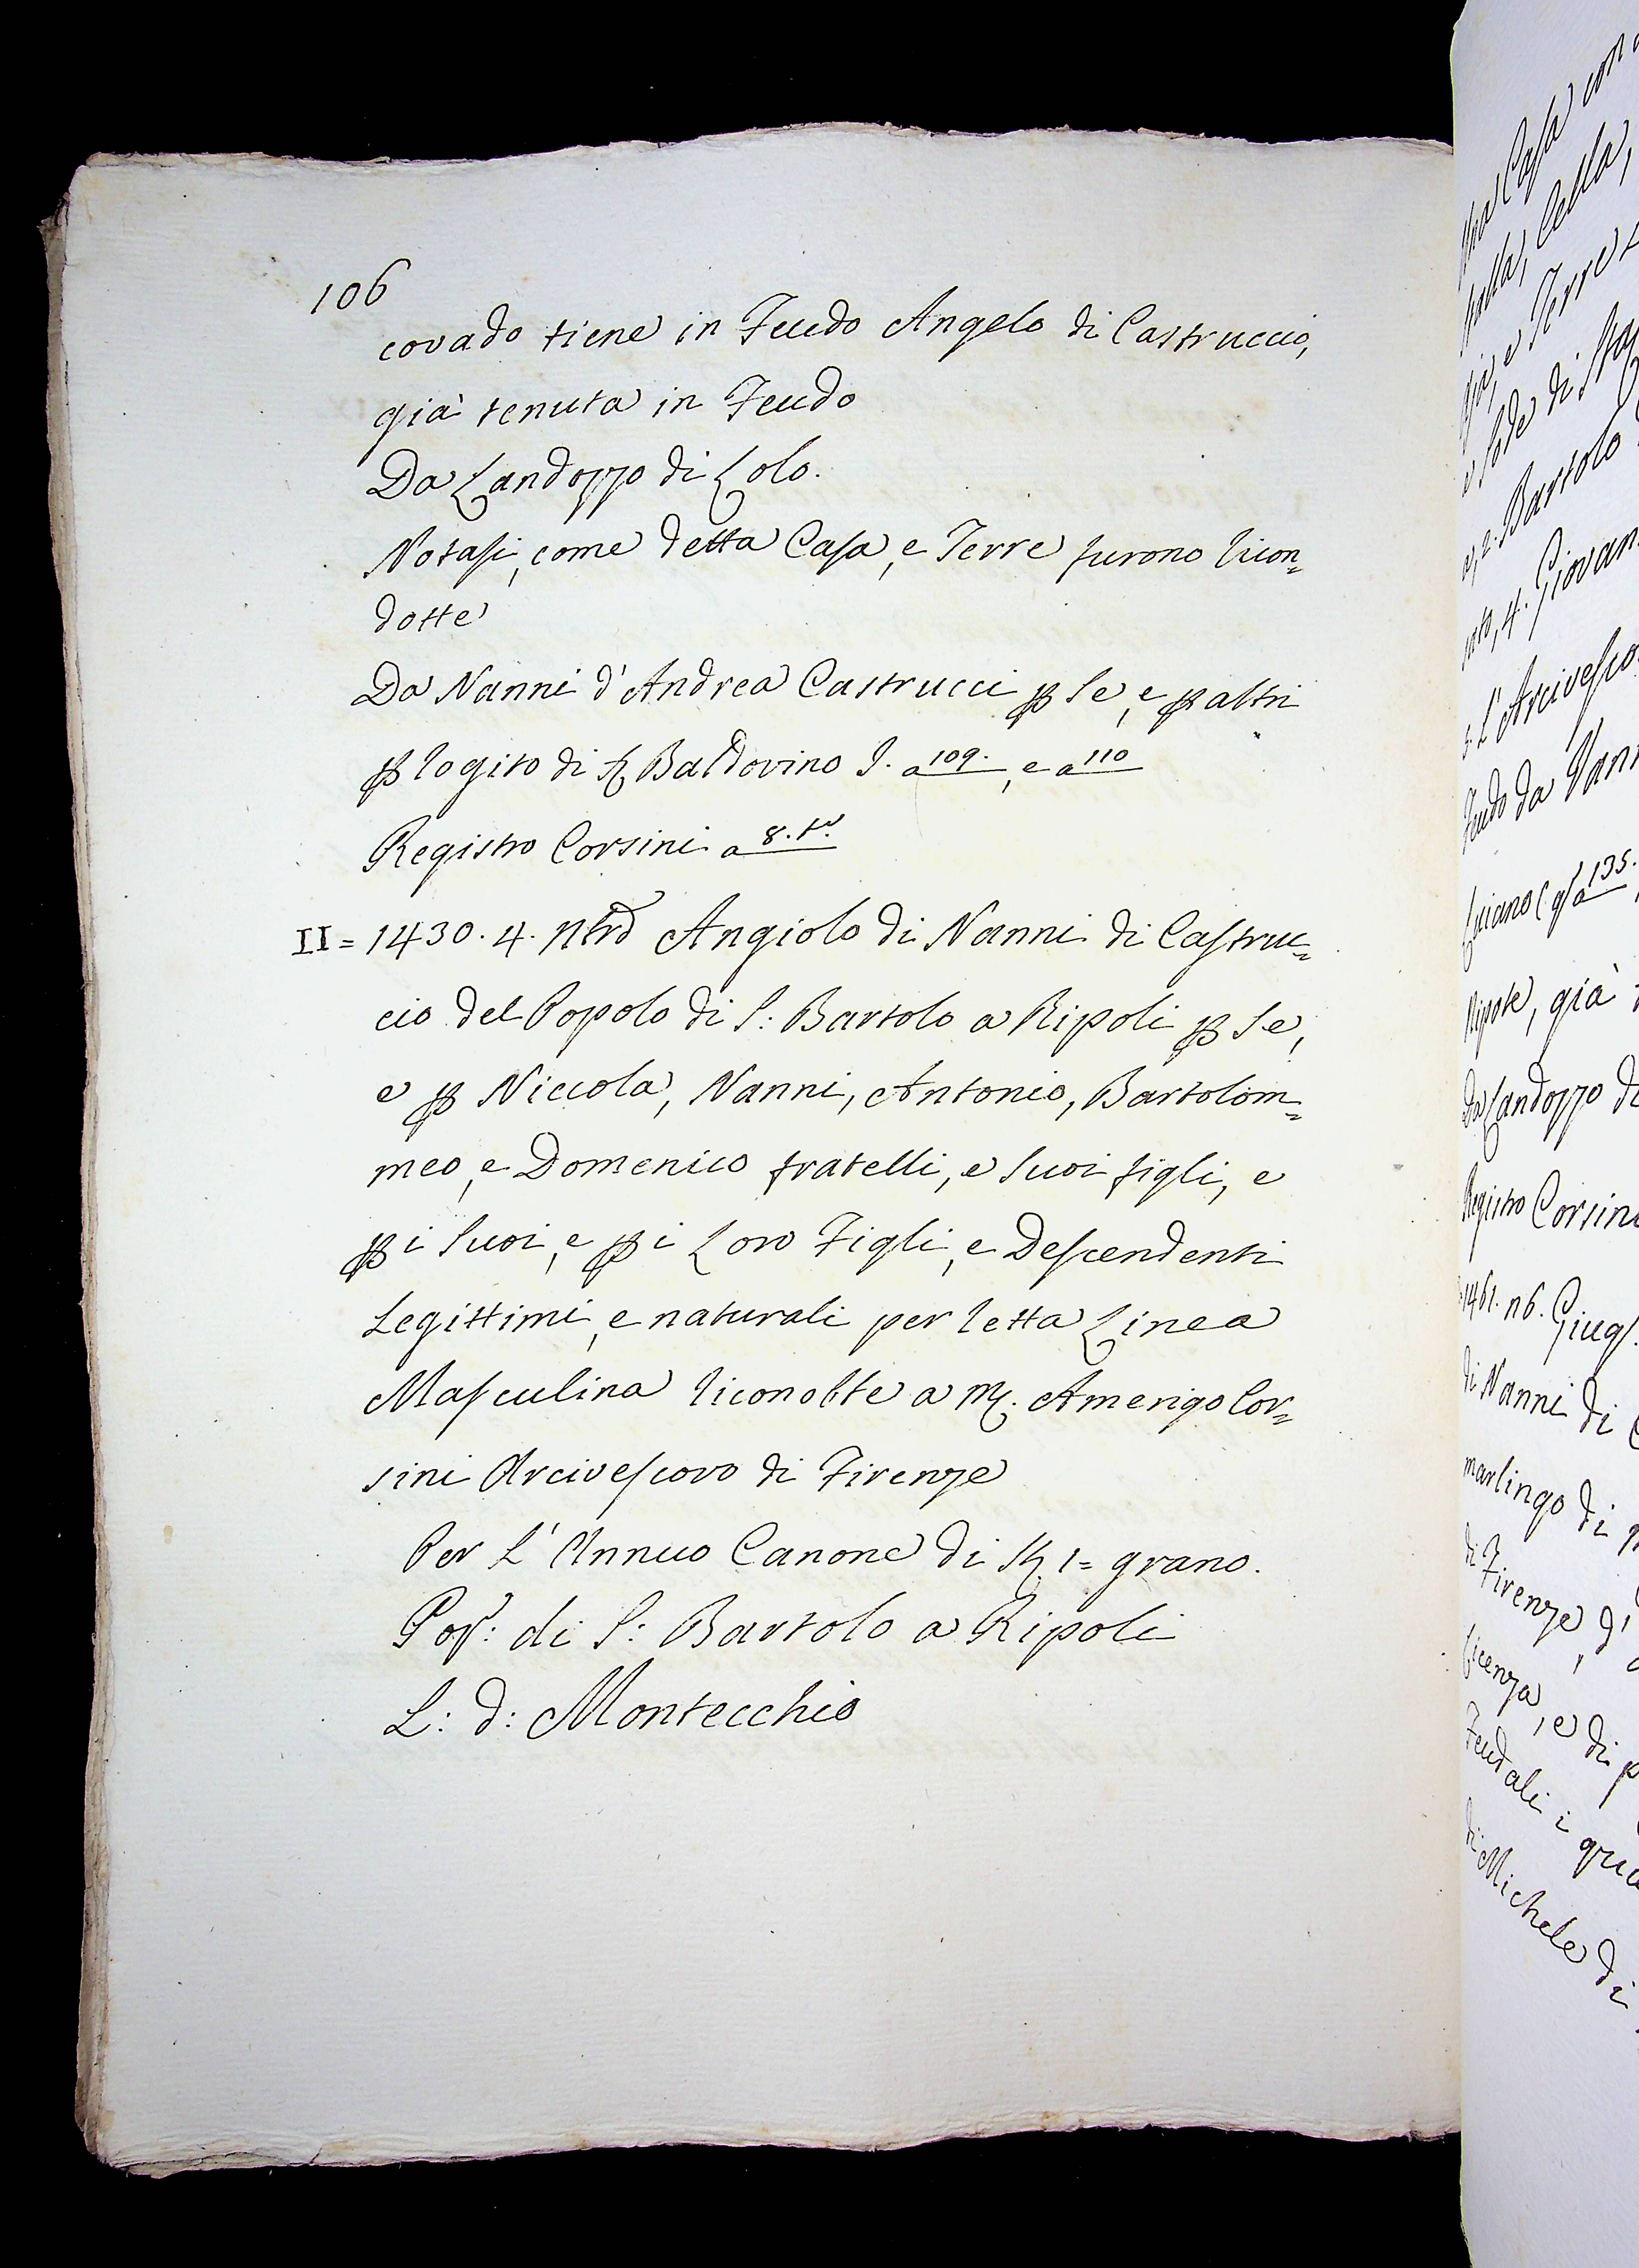 106
covado tiene in Feudo Angelo di Castruccio,
già tenuta in Feudo
Da Landozzo di Lolo.
Notasi, come detta Casa, e Terre furono ricon=
dotte
Da Nanni d'Andrea Castrucci p Se, e p altri
p rogito di Baldovino I. a 109., e a 110
Registro Corsini a 8. t.
II = 1430. 4. Nbrẽ Angiolo di Nanni di Castruc=
cio del Popolo di S: Bartolo a Ripoli p Se,
e p Niccola, Nanni, Antonio, Bartolom=
meo, e Domenico fratelli, e Suoi figli, e
p i Suoi, e p i Loro Figli, e Descendenti
Legittimi, e naturali per retta Linea
Masculina riconobbe a M. Amerigo Cor=
sini Arcivescovo di Firenze
Per L'Annuo Canone di St. 1 = grano.
Pop: di S: Bartolo a Ripoli
L: d: Montecchio
Casa con
Cella,
e Terre
di
2. Bartolo
4. Giovan
L'Arcivesco
Feudo da Nanni
a 135.
Ripole, già
Da Landozzo di
Registro Corsini
1461. 16. Giug.
di Nanni di
marlingo di
di Firenze, d'
licenza, e di p
Feudali i qua
di Michele di